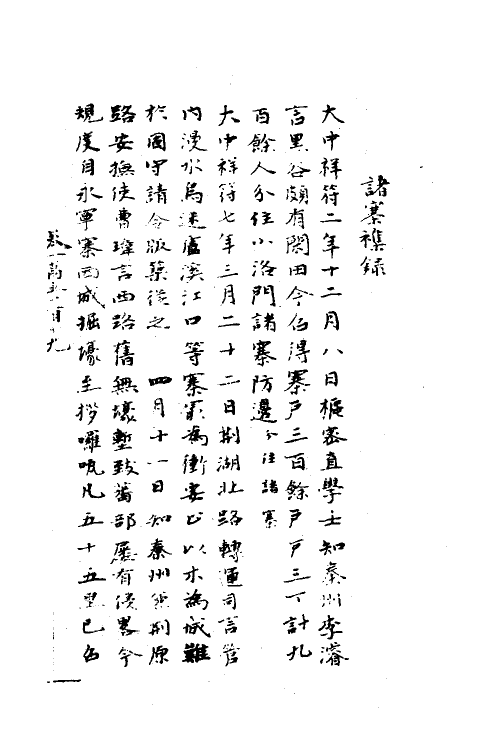 諸寨襍録
大中祥符二年十二月八日樞密直學士知秦州李濬
言黒谷頗有閑田今召得寨戸三百餘戸戸三丁計九
百餘人分住小洛門諸寨防邊分注諸寨
大中祥符七年三月二十二日荆湖北路轉運司言管
内漫水烏速盧溪江口等寨最為衝要止以木為城難
於固守請令版築從之 四月十一日知秦州兼荆原
路安撫使曹瑋言西路舊無壕塹致蕃部屢有侵畧今
規度自永寧寨西城掘壕至拶囉咓凡五十五里已召
卷一萬五千百十九